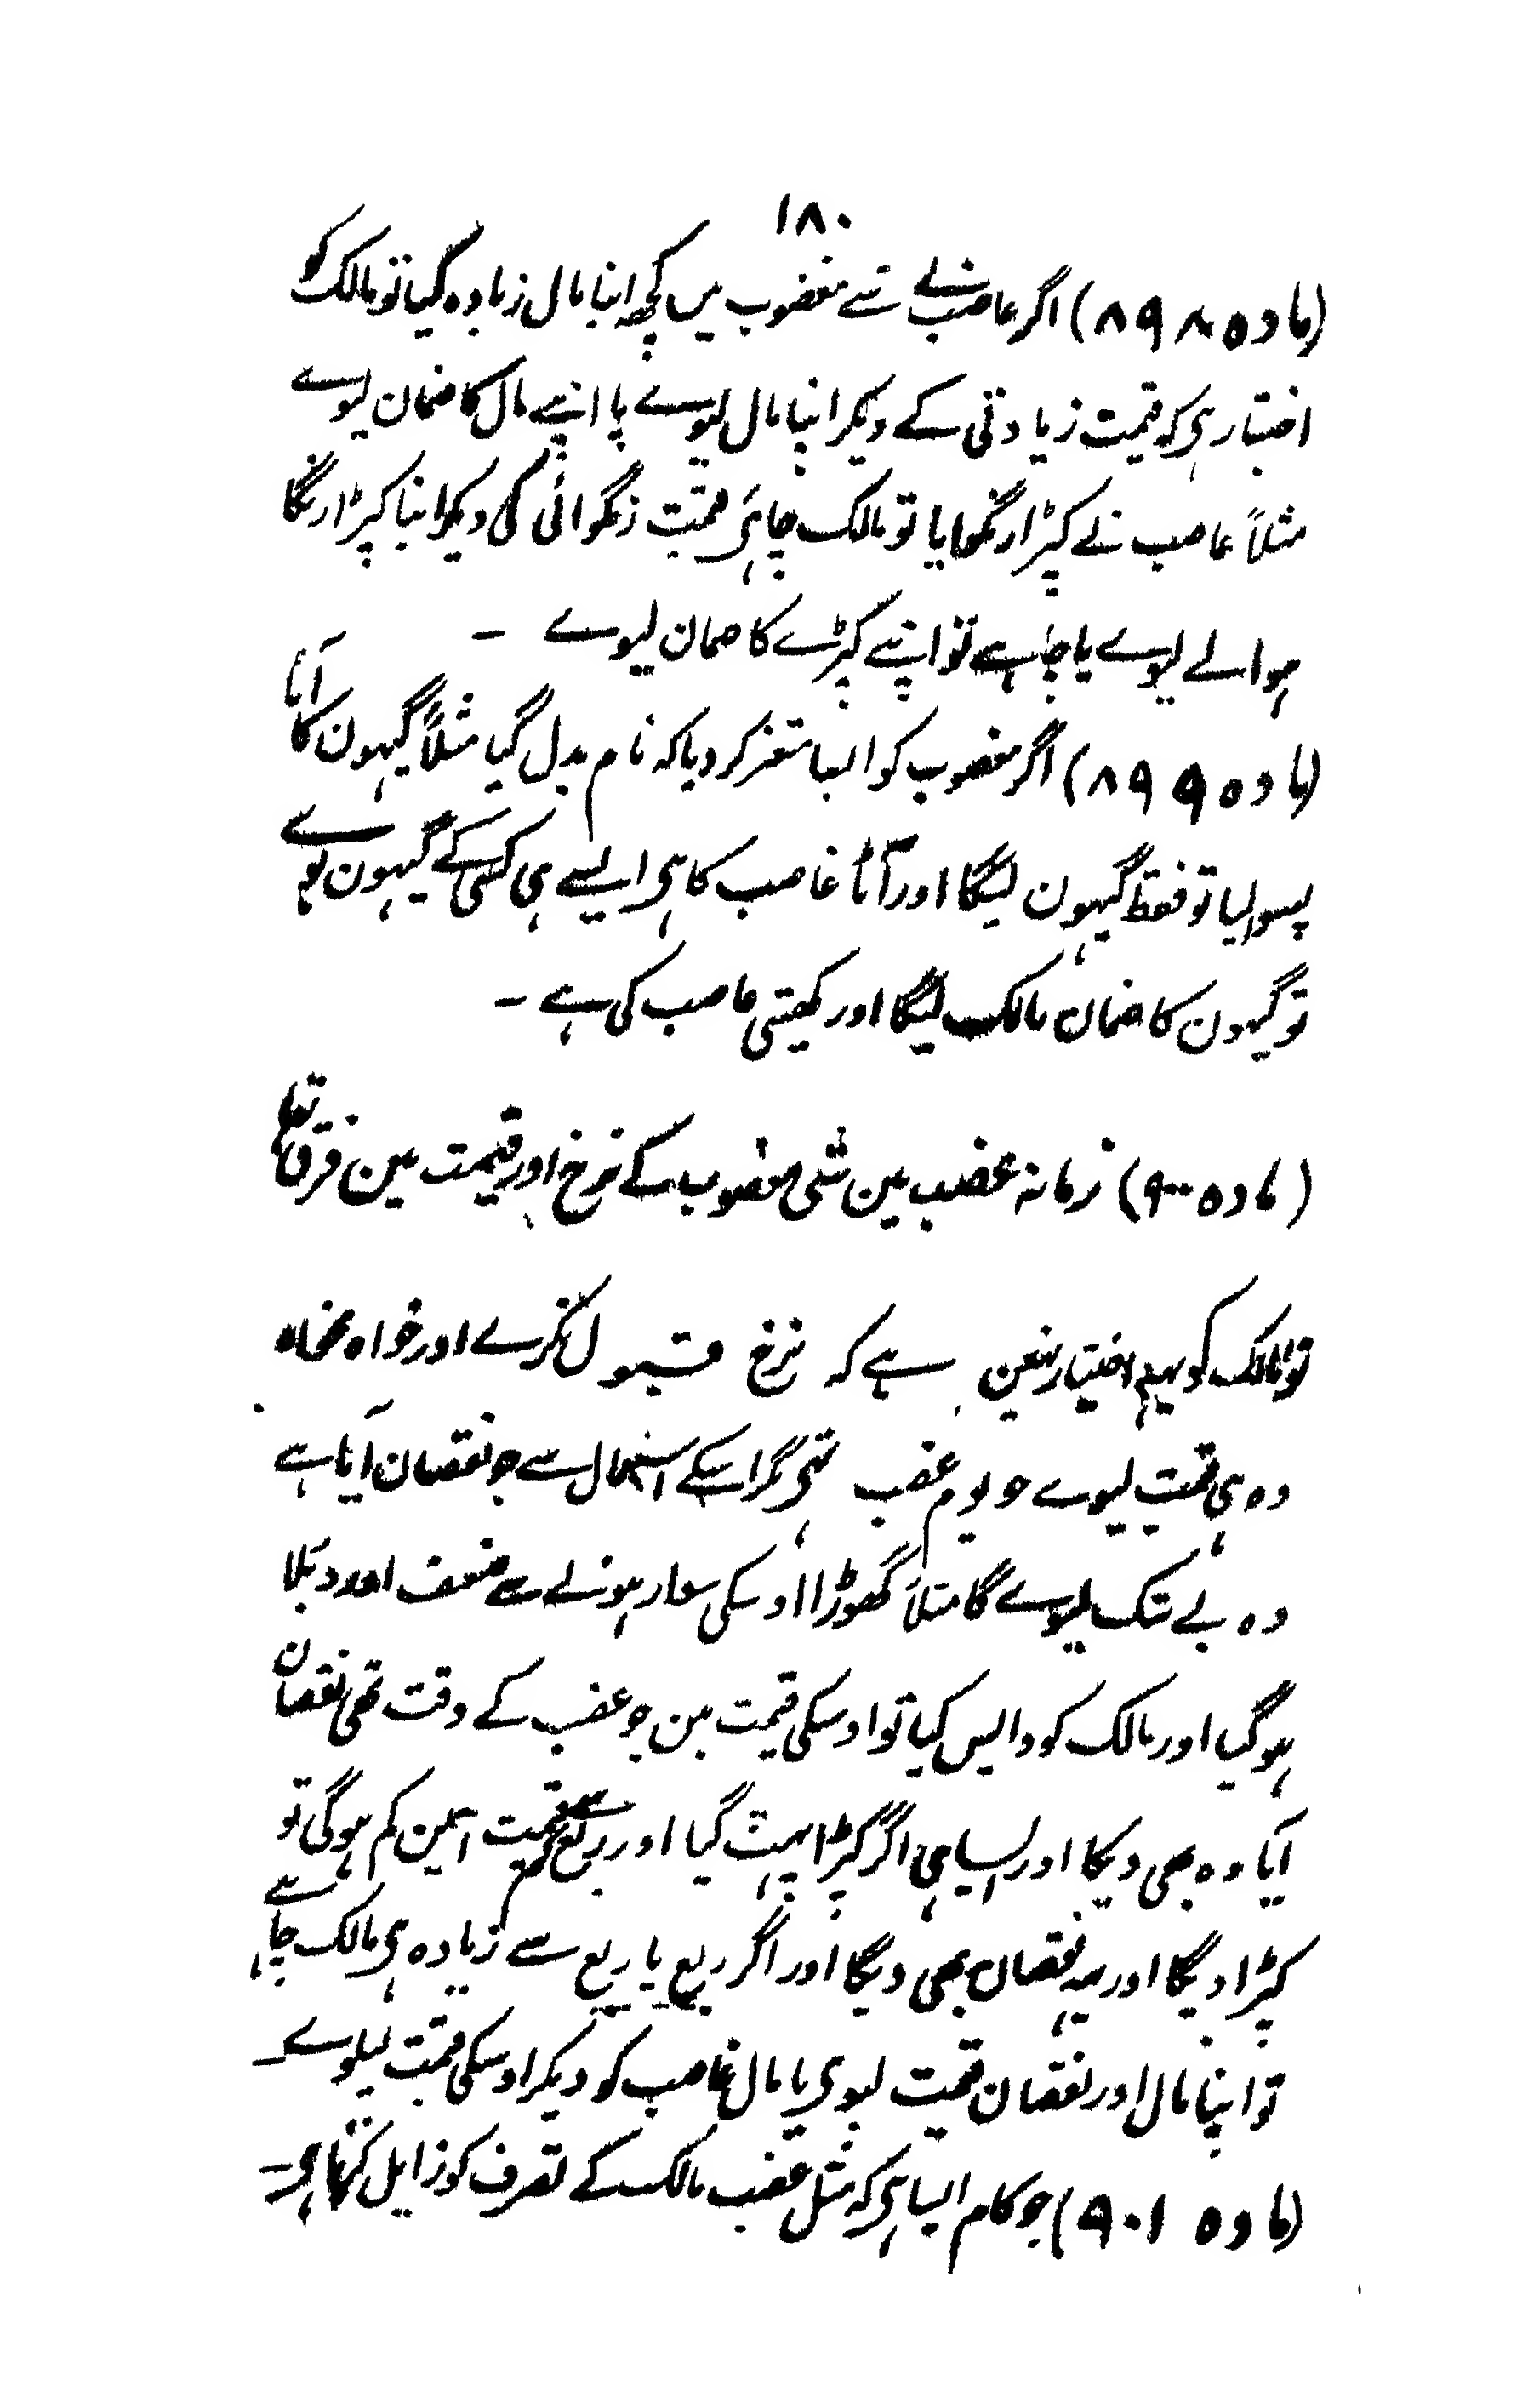 ۱۸۰
(مادہ ۸۹۸) اگر غاصب نے شے مغضوب میں کچھ اپنا مال زیادہ گیا تو مالک کو
اختیار ہی کہ قیمت زیادتی کے دیکر اپنا مال لیوے یا اپنے مال کا ضمان لیوے
مثلاً غاصب نے کپڑا رنگوایا تو مالک چاہی قیمت رنگوائی کی دیکر اپنا کپڑا رنگا
ہوا لے لیوے یا چاہے تو اپنے کپڑے کا ضمان لیوے ۔
(مادہ ۸۹۹) اگر مغصوب کو ایسا متغیر کردیا کہ نام بدل گیا مثلاً گیہون کا آٹا
پسوا لیا تو فقط گیہون لیگا اور آٹا غاصب کا ہی ایسے ہی کسی کے گیہون بوے
تو گیہون کا ضمان مالک لیگا اور کھیتی غاصب کی ہے ۔
(مادہ ۹۰۰) زمانہ غضب مین شی مغضوب کے نرخ اور قیمت مین فرق تھا
تو مالک کو یہہ اختیار نہین ہے کہ نرخ قبول نکرے اور خواہ مخواہ
وہ ہی قیمت لیوے جو یوم غضب تھی مگر اسکے استعمال سے جو نقصان آیا ہے
وہ بے شک لیوے گا مثلاً گھوڑا اوسکی سوار ہونے سے ضعف اور دبلا
ہو گیا اور مالک کو واپس کیا تو اوسکی قیمت مین جو غضب کے وقت تھی نقصان
آیا وہ بھی دیگا اور ایسیا ہی اگر کپڑا پہٹ گیا اور ربع سے قیمت اسمین کم ہو گی تو
کپڑا دیگا اور یہہ نقصان بھی دیگا اور اگر ربع یا ربع سے زیادہ ہی مالک چاہے
تو اپنا مال اور نقصان قیمت لیوی یا مال غاصب کو دیکر اوسکی قیمت لیلوے ۔
(مادہ ۹۰۱) جو کام ایسا ہی کہ مثل غضب مالک کے تصرف کو زایل کرتا ہی ۔